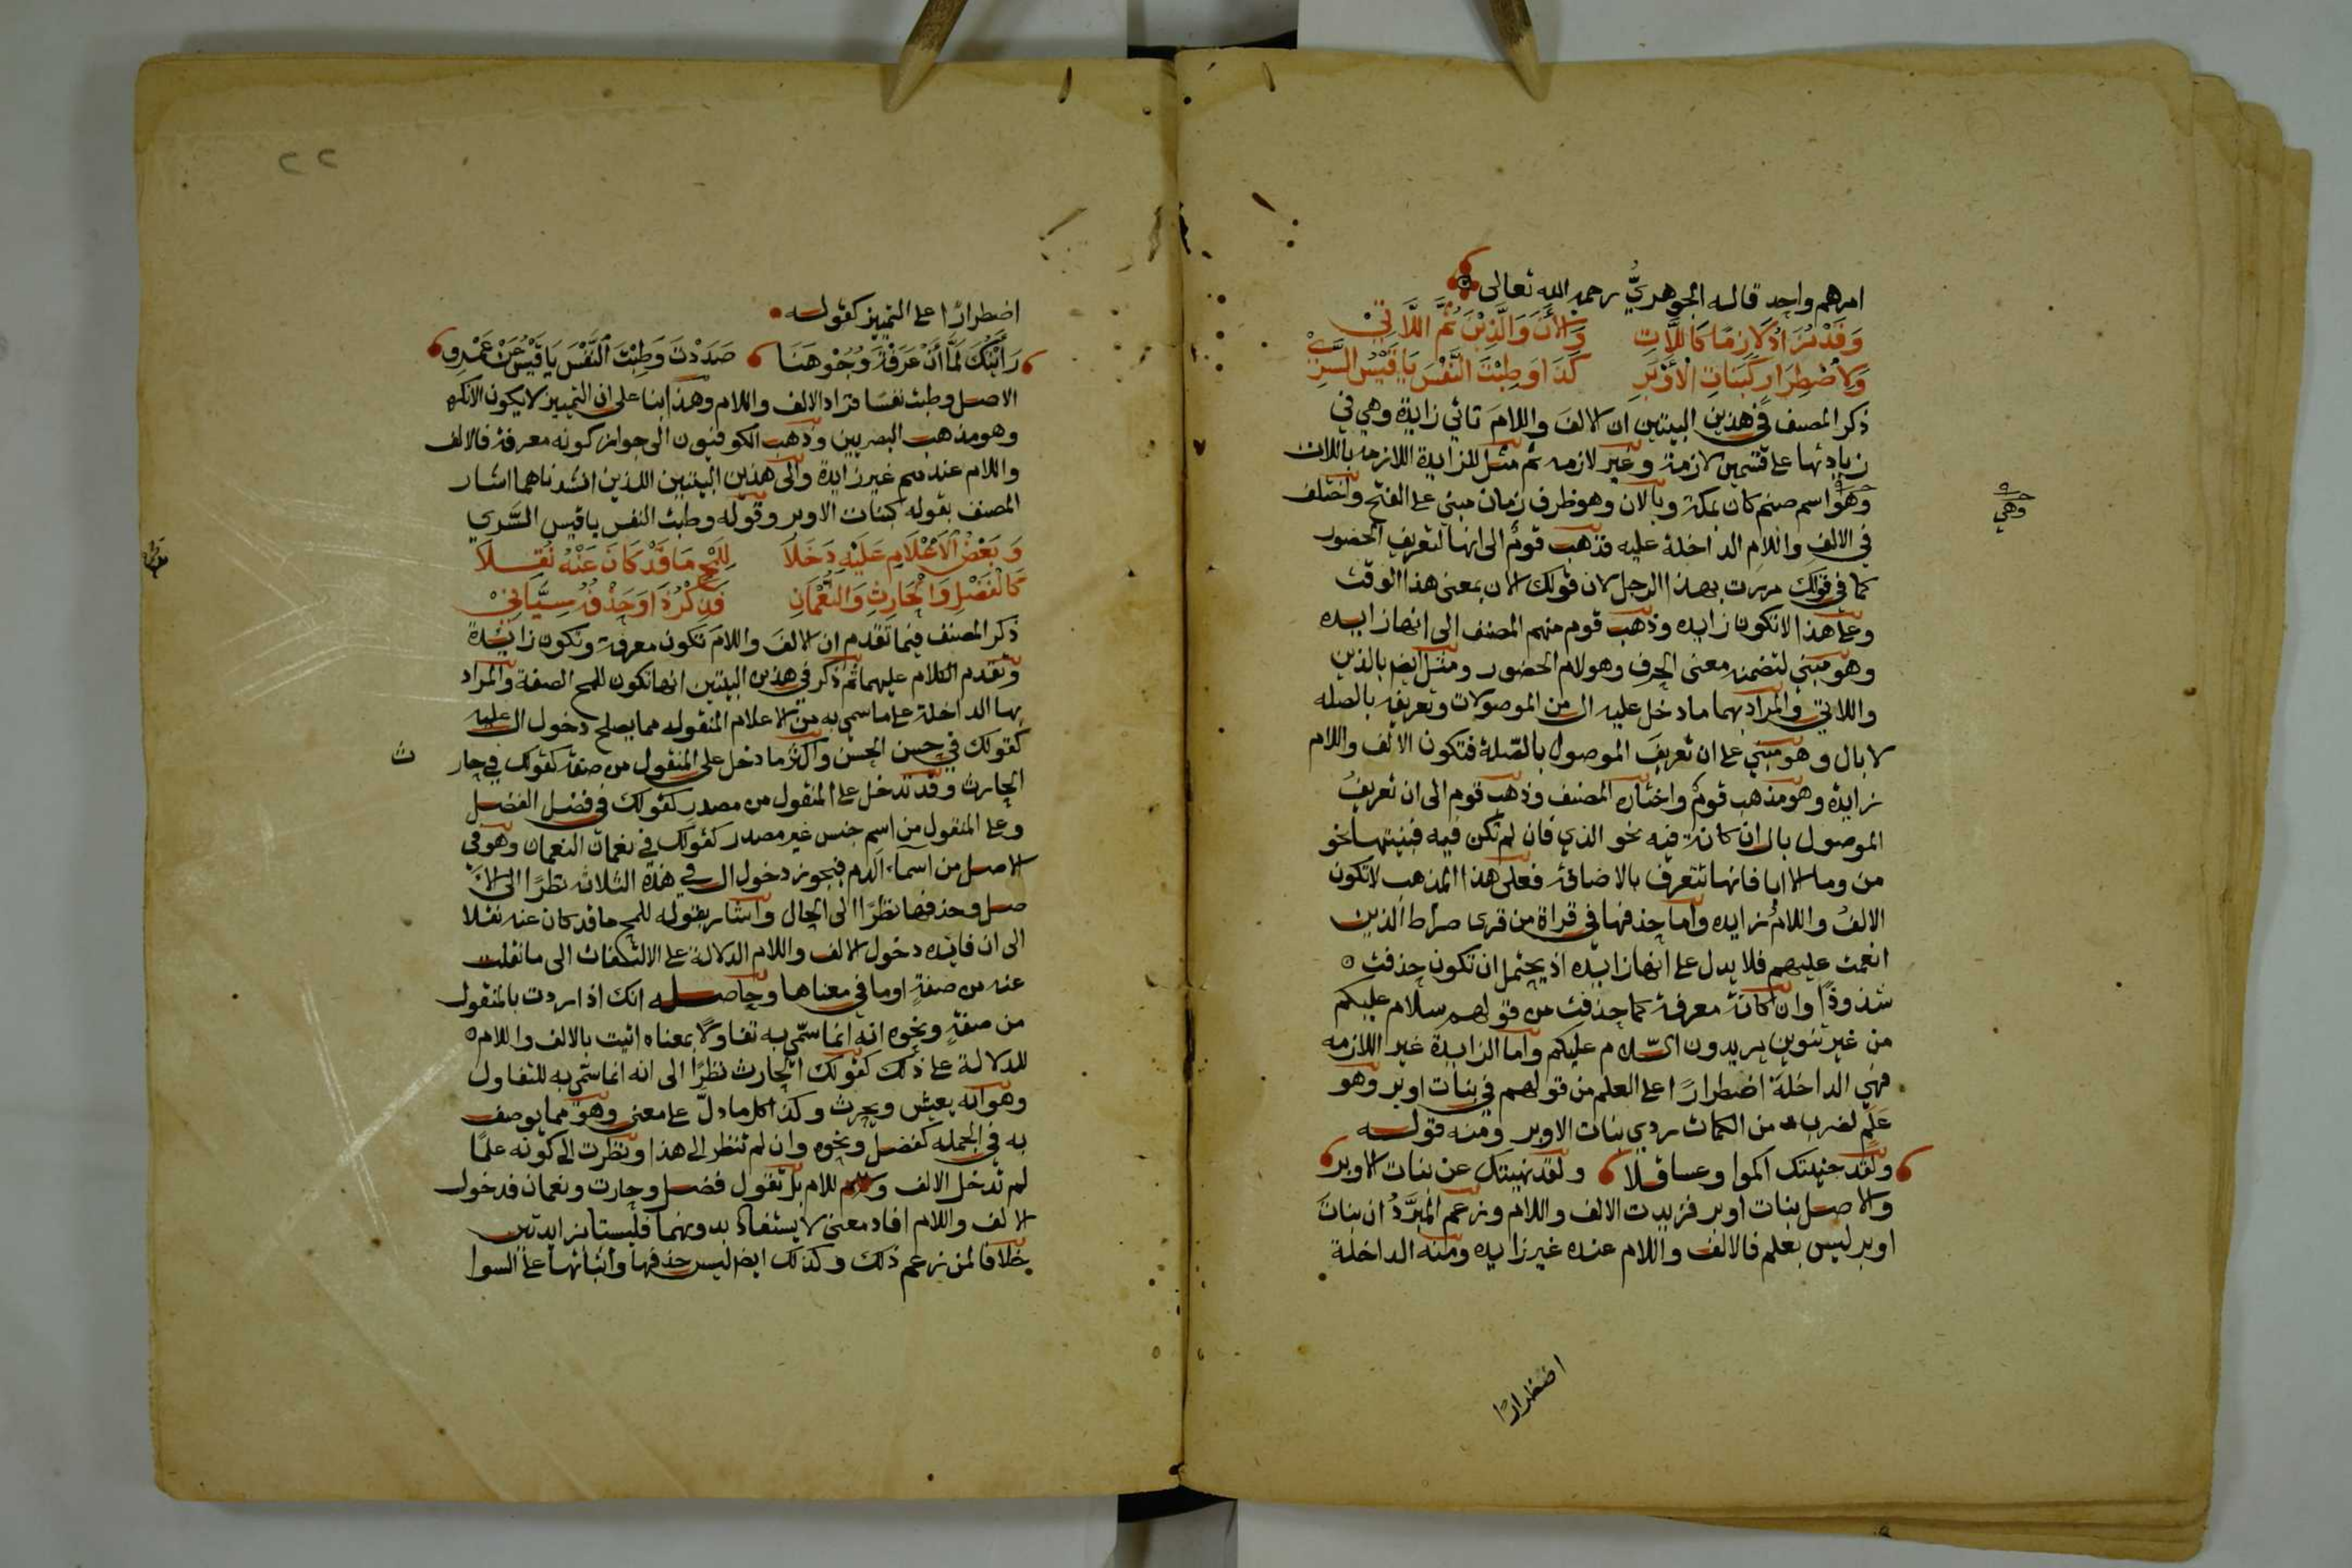 امرهم واحد قاله الجوهريُّ رحمه الله تعالى
وَقَدْ تُزَادُ لَازِمًا كَاللَّاتِ وَالْآنَ وَالَّذِيْنَ ثُمَّ اللَّاتِيْ
وَلِاضْطِرَارٍ كَبَنَاتِ الْأَوْبَرِ كَذَا وَطِبْتَ النَّفْسَ يَا قَيْسُ السَّرِيْ
ذكر المصنف في هذين البيتين ان الالفَ واللامَ تاتي زايدة وهي في
زيادتها على قسمين لازمة وغير لازمه ثم مثل للزايدة اللازمه باللات
وهو اسم صنم كان بمكة وبالان وهو ظرف زمان مبني على الفتح واختلف
وهي
في الالف واللام الداخلة عليه فذهب قومٌ الى انها لتعريف الحضور
كما في قولك مررت بهذا الرجل لان قولك الان بمعنى هذا الوقت
وعلى هذا لا تكون زايده وذهب قوم منهم المصنف الى انها زايده
وهو مبني لتضمنه معنى الحرف وهو لام الحضور ومثل ايض بالذين
واللاتي والمراد بهما ما دخل عليه ال من الموصولات وتعريفه بالصله
لا بال وهو مبني على ان تعريفَ الموصول بالصّلة فتكون الالف واللام
زايدة وهو مذهب قومٌ واختاره المصنف وذهب قوم الى ان تعريفُ
الموصول بال ان كانة فيه نحو الذي فان لم تكن فيه فبنيتها نحو
من وما الا ايا فانها تتعرف بالاضافة فعلى هذا المذهب لا تكون
الالفُ واللامُ زايده واما حذفها في قراة من قرى صراط الذين
انعمت عليهم فلا يدل على انها زايده اذ يحتمل ان تكون حذفت
شذوذًا وان كانة معرفة كما حذفت من قولهم سلام عليكم
من غير تنوين يريدون السّلام عليكم واما الزايدة غير اللازمه
فهي الداخلة اضطرارًا على العلم من قولهم في بنات اوبر وهو
عَلَم لضرب من الكمات ردي بنات الاوبر ومنه قوله
ولقد جنيتك اكموا وعساقلا ولقد نهيتك عن بنات الاوبر
والاصل بنات اوبر فزيدت الالف واللام وزعم المبرّدُ ان بنات
اوبر ليس بعلم فالالف واللام عنده غير زايده ومنه الداخلة
اضطرارًا
٢٢
اضطرارًا على التمييز كقوله
رَأَيْتُكَ لَمَّا أَنْ عَرَفْتَ وُجُوْهَنَا صَدَدْتَ وَطِبْتَ النَّفْسَ يَا قَيْسُ عَنْ عَمْرِو
الاصل وطبت نفسًا فزاد الالف واللام وهذا بنا على ان التمييز لا يكون الا نكره
وهو مذهب البصريين وذهب الكوفيون الى جواز كونه معرفة فالالف
واللام عندهم غير زايدة والى هذين البيتين اللذين انشدناهما اشار
المصنف بقوله كبنات الاوبر وقوله وطبت النفس يا قيس السَّري
وَبَعْضُ الْأَعْلَامِ عَلَيْهِ دَخَلَا لِلَمْحِ مَا قَدْ كَانَ عَنْهُ نُقِلَا
كَالْفَضْلِ وَالْحَارِثِ وَالنُّعْمَانِ فَذِكْرُ ذَا وَحَذْفُهُ سِيَّانِيْ
ذكر المصنف فيما تقدم ان الالفَ واللامَ تكون معرفة وتكون زايدة
وتقدم الكلام عليهما ثم ذكر في هذين البيتين انها تكون للمح الصفة والمراد
بها الداخلة على ما سمي به من الاعلام المنقوله مما يصلح دخول ال عليه
كقولك في حسن الحسن واكثر ما دخل على المنقول من صفة كقولك في حار
ث
الحارث وقد تدخل على المنقول من مصدر كقولك في فضل الفضل
وعلى المنقول من اسم جنس غير مصدر كقولك في نعمان النعمان وهو في
الاصل من اسماء الدم فيجوز دخول ال في هذه الثلاثه نظرًا الى الا
صل وحذفها نظرًا الى الحال واشار بقوله للمح ما قد كان عنه نقلا
الى ان فايده دخول الالف واللام الدلالة على الالتفات الى ما نقلت
عنه من صفةٍ او ما في معناها وحاصله انك اذا اردت بالمنقول
من صفةٍ ونحوه انه انما سمّي به تفاولًا بمعناه اتيت بالالف واللام
للدلالة على ذلك كقولك الحارث نظرًا الى انه انما سمّي به للتفاول
وهو انه يعيش ويحرث وكذا كل ما دلّ على معنى وهو مما يوصف
به في الجمله كفضل ونحوه وان لم تنظر الى هذا ونظرت الى كونه علمًا
لم تدخل الالف واللام بل تقول فضل وحارث ونعمان فدخول
الالف واللام افاد معنى لا يستفاد بدونهما فليستا بزايدتين
خلافا لمن زعم ذلك وكذلك ايض ليس حذفها واثباتها على السوا